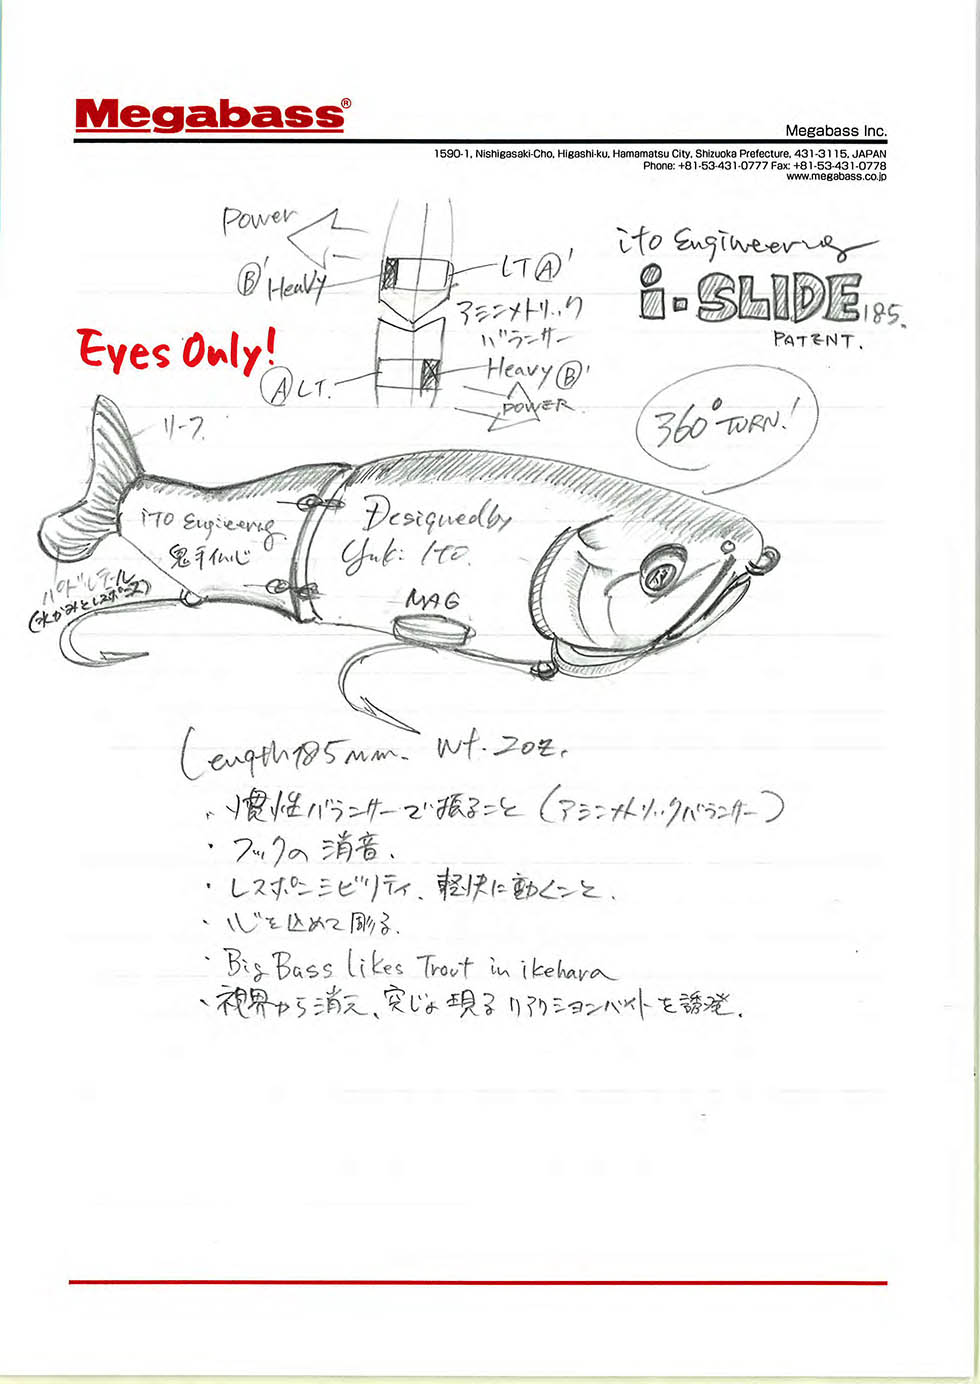 Megabass®
Megabass Inc.
1590-1, Nishigasaki-Cho, Higashi-ku, Hamamatsu City, Shizuoka Prefecture, 431-3115, JAPAN
Phone: +81-53-431-0777 Fax: +81-53-431-0778
www.megabass.co.jp
Power
B' Heavy
LT A'
アシンメトリック
バランサー
ito Engineering
i-SLIDE 185.
PATENT.
Eyes Only!
A LT.
Heavy B'
POWER
360° TURN!
リーフ
iTO Engineering
鬼手仏心
Designed by
Yuki ITO.
パドルテール
(水がみとレスポンス)
MAG
Length 185mm. Wt. 2oz.
・慣性バランサーで振ること(アシンメトリックバランサー)
・フックの消音.
・レスポンシビリティ、軽快に動くこと.
・心を込めて彫る.
・Big Bass likes Trout in ikehara
・視界から消え、突じょ現るリアクションバイトを誘発.